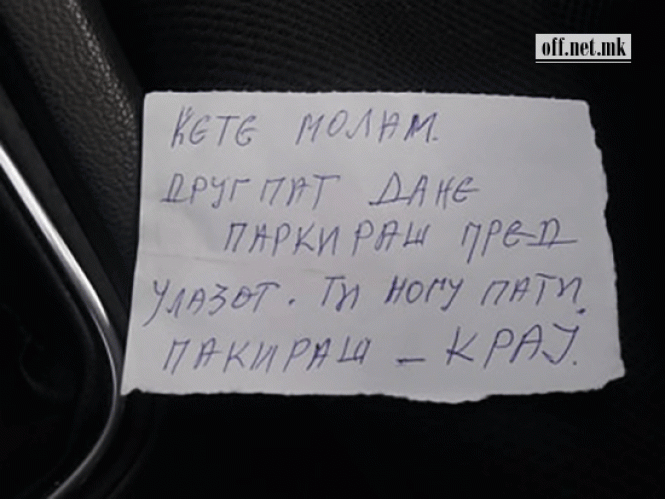 off.net.mk
ЌЕТЕ МОЛАМ.
ДРУГ ПАТ ДАНЕ
ПАРКИРАШ ПРЕД
УЛАЗОТ. ТИ НОГУ ПАТИ.
ПАКИРАШ – КРАЈ.